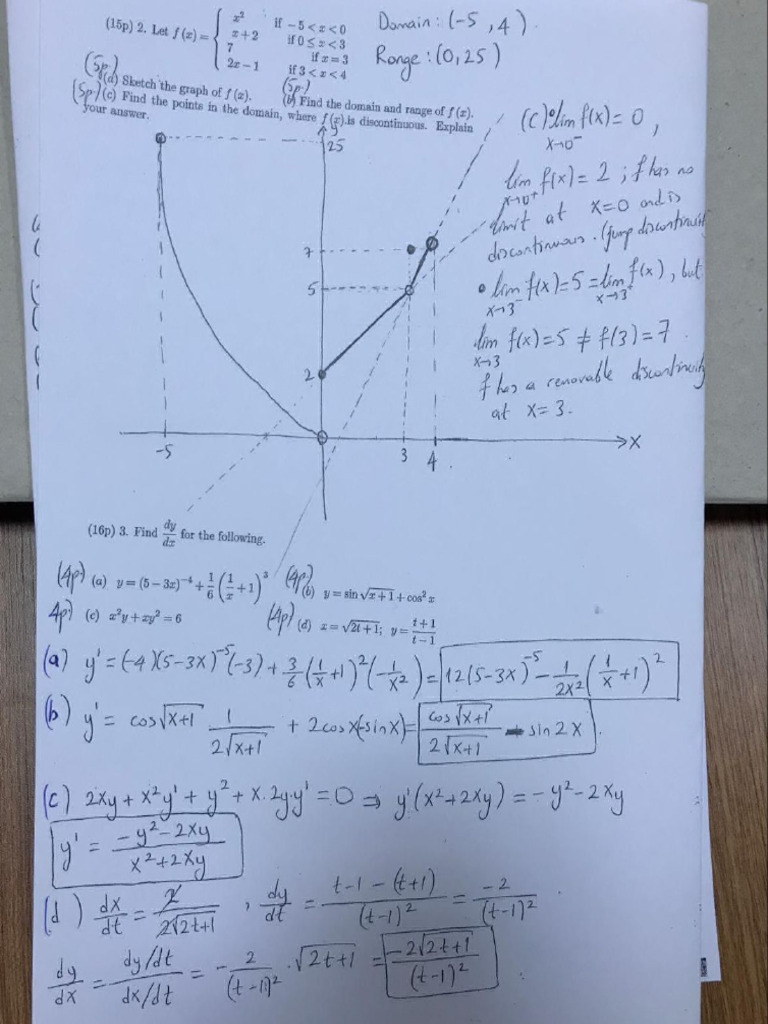 (15p) 2. Let f(x) = { x² if −5 < x < 0
x + 2 if 0 ≤ x < 3
7 if x = 3
2x − 1 if 3 < x < 4
Domain : (-5, 4).
Range : (0, 25)
(5p) (a) Sketch the graph of f(x). (5p) (b) Find the domain and range of f(x).
(5p) (c) Find the points in the domain, where f(x) is discontinuous. Explain
your answer.
y
25
7
5
2
-5
3
4
x
(c) • lim x→0⁻ f(x) = 0 ,
lim x→0⁺ f(x) = 2 ; f has no
limit at x=0 and is
discontinuous. (jump discontinuit
• lim x→3⁻ f(x) = 5 = lim x→3⁺ f(x), but
lim x→3 f(x) = 5 ≠ f(3) = 7.
f has a removable discontinuity
at x = 3.
(16p) 3. Find dy/dx for the following.
(4p) (a) y = (5 − 3x)⁻⁴ + 1/6 (1/x + 1)³ (4p) (b) y = sin √(x + 1) + cos² x
4p) (c) x²y + xy² = 6 (4p) (d) x = √(2t + 1); y = (t + 1)/(t − 1)
(a) y' = (-4)(5-3x)⁻⁵(-3) + 3/6 (1/x + 1)² (-1/x²) = 12(5-3x)⁻⁵ - 1/(2x²) (1/x + 1)²
(b) y' = cos√(x+1) 1/(2√(x+1)) + 2cosx(-sinx) = cos√(x+1)/(2√(x+1)) - sin2x.
(c) 2xy + x²y' + y² + x.2y.y' = 0 ⇒ y'(x²+2xy) = -y²-2xy
y' = (-y²-2xy)/(x²+2xy)
(d) dx/dt = 2/(2√(2t+1)) , dy/dt = (t-1-(t+1))/(t-1)² = -2/(t-1)² .
dy/dx = (dy/dt)/(dx/dt) = -2/(t-1)² . √(2t+1) = -2√(2t+1)/(t-1)² .